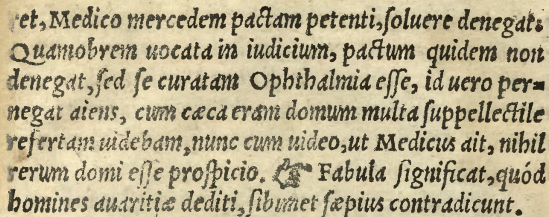 ret, Medico mercedem pactam petenti, soluere denegat.
Quamobrem uocata in iudicium, pactum quidem non
denegat, sed se curatam Ophthalmia esse, id uero per-
negat aiens, cum cæca eram domum multa suppellectile
refertam uidebam, nunc cum uideo, ut Medicus ait, nihil
rerum domi esse prospicio. ☞ Fabula significat, quód
homines auaritiæ dediti, sibimet sæpius contradicunt.